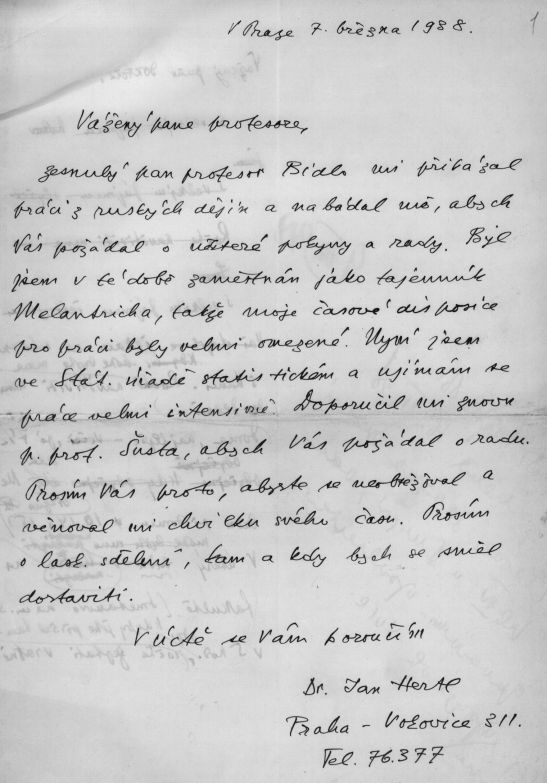 V Praze 7. března 1938.
1
Vážený pane profesore,
zesnulý pan profesor Bidlo mi přikázal
práci z ruských dějin a nabádal mě, abych
Vás požádal o některé pokyny a rady. Byl
jsem v té době zaměstnán jako tajemník
Melantricha, takže moje časové disposice
pro práci byly velmi omezené. Nyní jsem
ve Stát. úřadě statistickém a ujímám se
práce velmi intensivně. Doporučil mi znovu
p. prof. Šusta, abych Vás požádal o radu.
Prosím Vás proto, abyste se neobtěžoval a
věnoval mi chvilku svého času. Prosím
o lask. sdělení, kam a kdy bych se směl
dostaviti.
V úctě se Vám poroučím
Dr. Jan Hertl
Praha - Vokovice 311.
Tel. 76.377